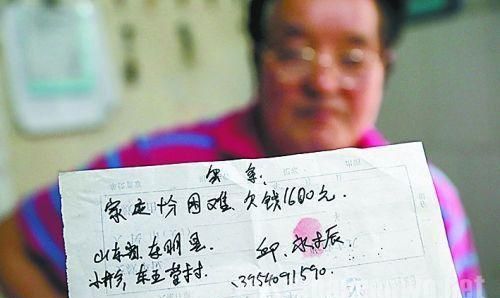 欠条.
家庭十分困难.欠钱1600元.
山东省.东明县. 邱
小井乡,东五营村. 13954091590.
.net